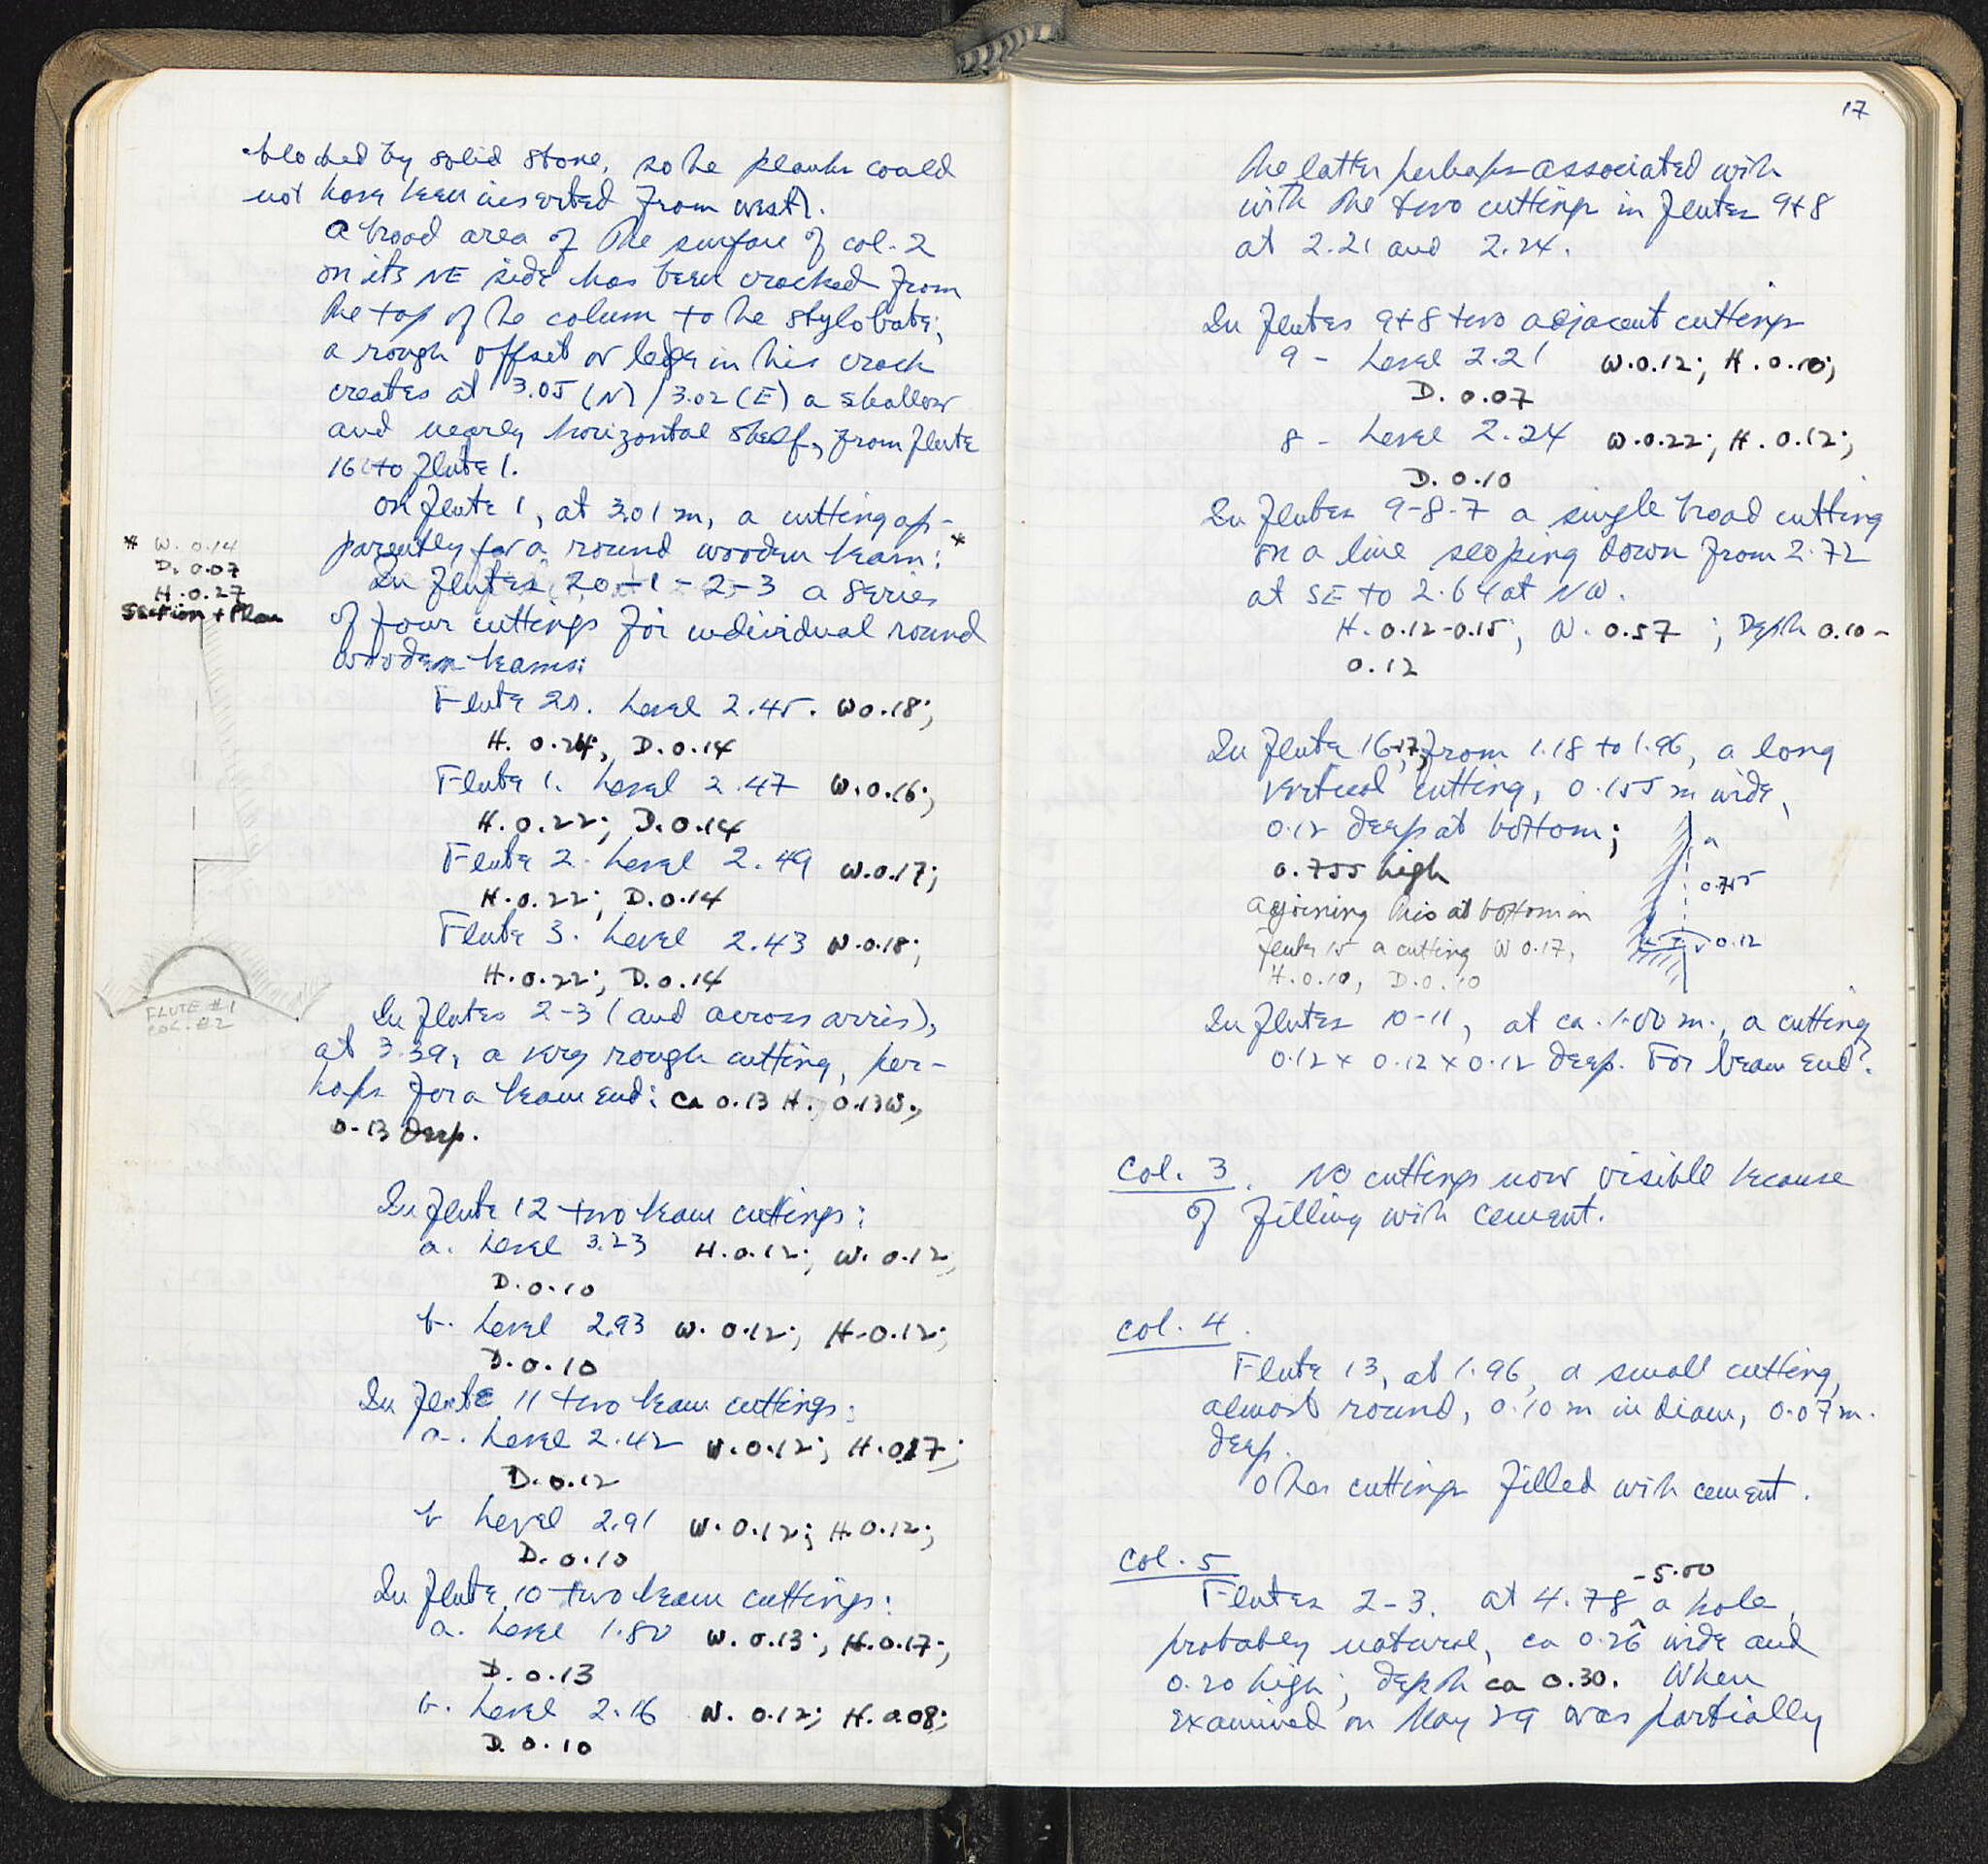 blocked by solid stone, so the planks could
not have been inserted from west).
a broad area of the surface of col. 2
on its NE side has been cracked from
the top of the column to the stylobate;
a rough offset or ledge in this crack
creates at 3.05 (N) / 3.02 (E) a shallow
and nearly horizontal shelf, from flute
16 to flute 1.
on flute 1, at 3.01 m, a cutting ap-
parently for a round wooden beam: *
* W. 0.14
D. 0.07
H. 0.27
Section + Plan
FLUTE #1
COL. #2
In flutes 20-1-2-3 a series
of four cuttings for individual round
wooden beams:
Flute 20. Level 2.45. W 0.18;
H. 0.24; D. 0.14
Flute 1. Level 2.47 W. 0.16;
H. 0.22; D. 0.14
Flute 2. Level 2.49 W. 0.17;
H. 0.22; D. 0.14
Flute 3. Level 2.43 W. 0.18;
H. 0.22; D. 0.14
In flutes 2-3 (and across arris),
at 3.39, a very rough cutting, per-
haps for a beam end: ca 0.13 H. 0.13 W.,
0.13 deep.
In flute 12 two beam cuttings:
a. Level 3.23 H. 0.12; W. 0.12,
D. 0.10
b. Level 2.93 W. 0.12; H. 0.12;
D. 0.10
In flute 11 two beam cuttings:
a. Level 2.42 W. 0.12; H. 0.17;
D. 0.12
b Level 2.91 W. 0.12; H. 0.12;
D. 0.10
In flute 10 two beam cuttings:
a. Level 1.80 W. 0.13; H. 0.17;
D. 0.13
b. Level 2.16 W. 0.12; H. 0.08;
D. 0.10
17
the latter perhaps associated with
with the two cuttings in flutes 9+8
at 2.21 and 2.24.
In flutes 9+8 two adjacent cuttings
9 - Level 2.21 W. 0.12; H. 0.10;
D. 0.07
8 - Level 2.24 W. 0.22; H. 0.12;
D. 0.10
In flutes 9-8-7 a single broad cutting
on a line sloping down from 2.72
at SE to 2.64 at NW.
H. 0.12-0.15; W. 0.57; Depth 0.10-
0.12
In flute 16,17, from 1.18 to 1.96, a long
vertical cutting, 0.155 m wide,
0.12 deep at bottom;
0.755 high
adjoining this at bottom in
flute 15 a cutting W 0.17,
H. 0.10, D. 0.10
0.755
0.12
In flutes 10-11, at ca. 1.00 m., a cutting
0.12 x 0.12 x 0.12 deep. For beam end?
Col. 3. No cuttings now visible because
of filling with cement.
Col. 4.
Flute 13, at 1.96, a small cutting,
almost round, 0.10 m in diam, 0.07 m.
deep.
Other cuttings filled with cement.
Col. 5
Flutes 2-3. at 4.78 -5.00 a hole,
probably natural, ca 0.26 wide and
0.20 high; depth ca 0.30. When
examined on May 29 was partially